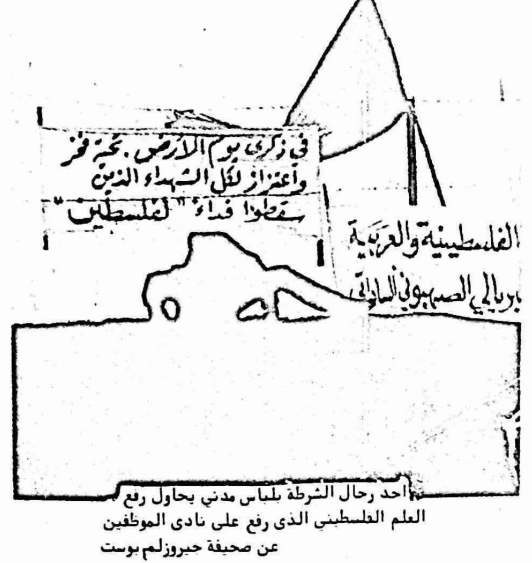 في ذكرى يوم الأرض. تحية فخر
وأعتزاز لكل الشهداء الذين
سقطوا فداءً "لفلسطين"
الفلسطينية والعربية
الصهيوني الساداتي
احد رحال الشرطة بلباس مدني يحاول رفع
العلم الفلسطيني الذى رفع على نادى الموظفين
عن صحيفة جيروزلم بوست